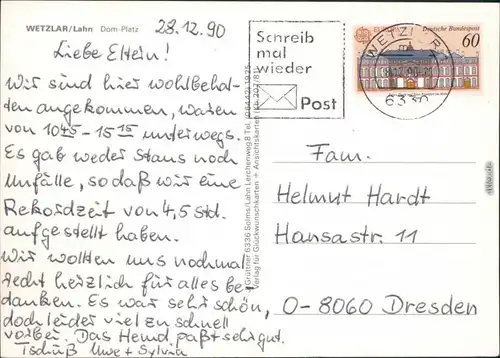 WETZLAR/Lahn Dom-Platz
28.12.90
Liebe Eltern!
Wir sind hier wohlbehal-
ten angekommen, waren
von 10 45 - 15 15 unterwegs.
Es gab weder Staus noch
Unfälle, so daß wir eine
Rekordzeit von 4,5 Std.
aufgestellt haben.
Wir wollten uns nochmal
recht herzlich für alles be-
danken. Es war sehr schön,
doch leider viel zu schnell
vorbei. Das Hemd paßt sehr gut.
Tschüß Uwe + Sylvia
Grüttner 6336 Solms/Lahn Lerchenweg 8 Tel. (06442) 1925
Verlag für Glückwunschkarten + Ansichtskarten
Schreib
mal
wieder
Post
EUROPA
Deutsche Bundespost
60
WETZLAR
6330
Fam.
Helmut Hardt
Hansastr. 11
O-8060 Dresden